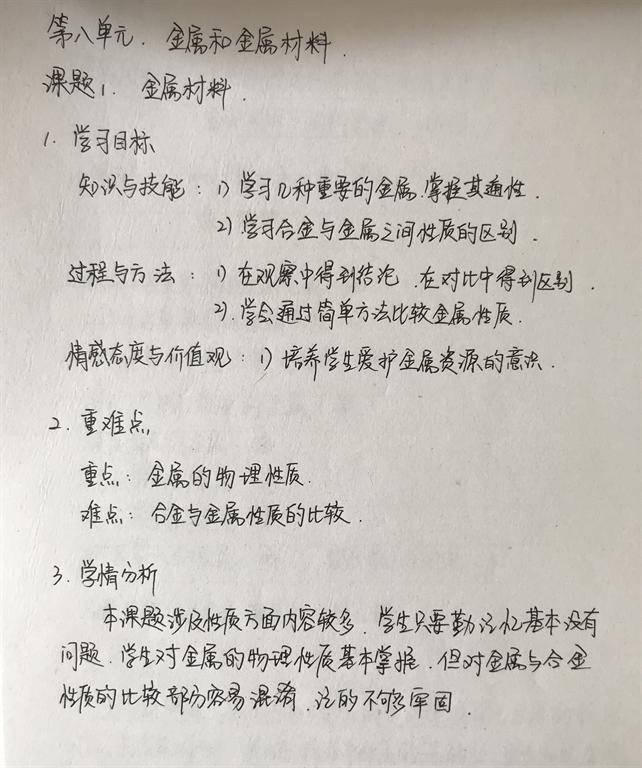 第八单元. 金属和金属材料.
课题1. 金属材料.
1. 学习目标
知识与技能: 1) 学习几种重要的金属.掌握其通性.
2) 学习合金与金属之间性质的区别.
过程与方法: 1) 在观察中得到结论.在对比中得到区别.
2). 学会通过简单方法比较金属性质.
情感态度与价值观: 1) 培养学生爱护金属资源的意识.
2. 重难点.
重点: 金属的物理性质.
难点: 合金与金属性质的比较.
3. 学情分析
本课题涉及性质方面内容较多.学生只要勤记忆基本没有
问题.学生对金属的物理性质基本掌握.但对金属与合金
性质的比较部分容易混淆.记的不够牢固.